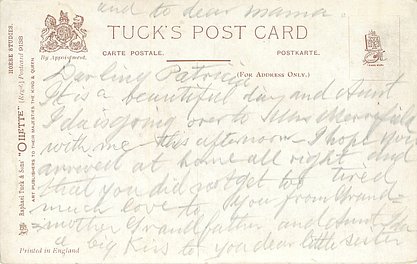 and to dear mama.
TUCK'S POST CARD
By Appointment.
CARTE POSTALE.
POSTKARTE.
(FOR ADDRESS ONLY.)
Darling Patricia
It is a beautiful day and Aunt
Ida is going over to Miss Merrifield
with me this afternoon - I hope you
arrived at home all right and
that you did not get too tired
much love to you from Grand-
mother Grandfather and Aunt Ida
a big kiss to you dear little sister
HORSE STUDIES.
Raphael Tuck & Sons' "OILETTE" (Regd.) Postcard 9138
ART PUBLISHERS TO THEIR MAJESTIES THE KING & QUEEN
Printed in England